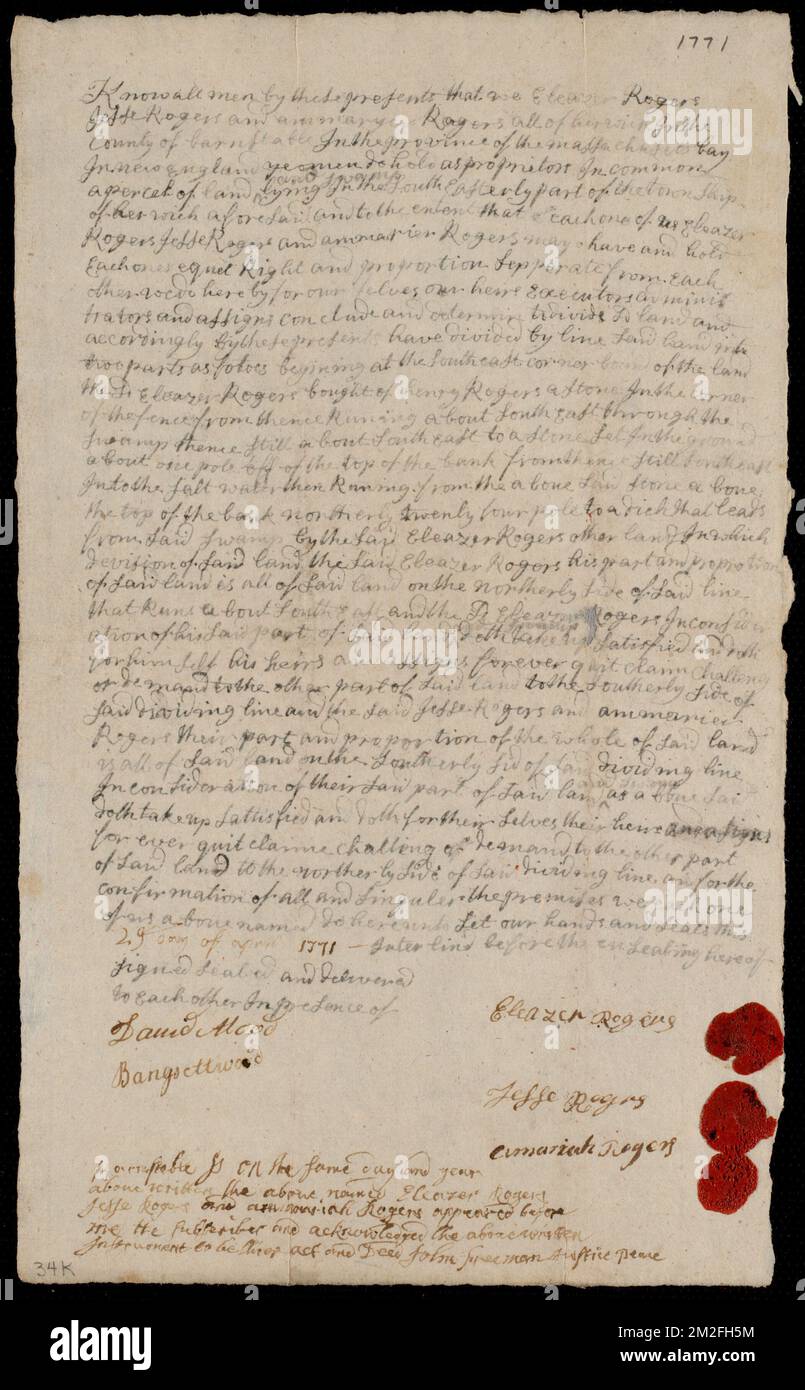 1771
Know all men by these presents that we Eleazer Rogers
Jesse Rogers and ammaryer Rogers all of harwich In the
County of barnstable In the province of the massachuset bay
In new England yeomen do hold as proprietors In common
and swamp
a percel of land lying In the South Easterly part of the town Ship
of harwich afore Said and to the entent that Each one of us Eleazer
Rogers Jesse Rogers and ammarier Rogers may have and hold
Each ones equel Right and proportion Sepperate from Each
other we do hereby for our selves our heirs Executors adminis
trators and assigns conclude and determine to divide Sd land and
accordingly by these presents have divided by line Said land into
two parts as foloes begining at the Southeast corner bound of the land
the Sd Eleazer Rogers bought of henry Rogers a stone In the corner
of the fence from thence Runing about South East through the
Swamp thence Still about South East to a stone Set In the ground
about one pole off of the top of the bank from thence Still Southeast
Into the Salt water then Runing from the aboue Said stone aboue
the top of the bank northerly twenty four pole to a dich that leads
from Said Swamp by the Said Eleazer Rogers other land In which
devision of Said land the Said Eleazer Rogers his part and proportion
of Said land is all of Said land on the northerly Side of Said line
that Runs about South East and the Sd Eleazer Rogers In consider
ation of his Said part of Said land doth take up Satisfied and doth
for him self his heirs and assigns forever quit claim challeng
or demand to the other part of Said land to the Southerly Side of
Said dividing line and the Said Jesse Rogers and ammarier
Rogers their part and proportion of the whole of Said land
is all of Said land on the Southerly Sid of Said dividing line
In consideration of their Said part of Said land as aboue Said
doth take up Sattisfied and doth for their Selves their heirs and assigns
for ever quit claime challing or demand to the other part
of Said land to the northerly Side of Said dividing line and for the
confirmation of all and Singuler the premises we Each one
of us aboue named do hereunto Set our hands and Seals this
29 day of april 1771 - Inter lind before the ensealing hereof
Signed Sealed and delivered
to Each other In presence of
Eleazer Rogers
David Atwood
Bangs Attwood
Jesse Rogrs
amariah Rogers
Barnstable Ss on the same day and year
above written the above named Eleazer Rogers
Jesse Rogers and ammariah Rogers appeared before
me the subscriber and acknowledged the above written
Instrument to be their act and Deed John freeman Justice peace
34K
alamy
Image ID: 2M2FH5M
www.alamy.com